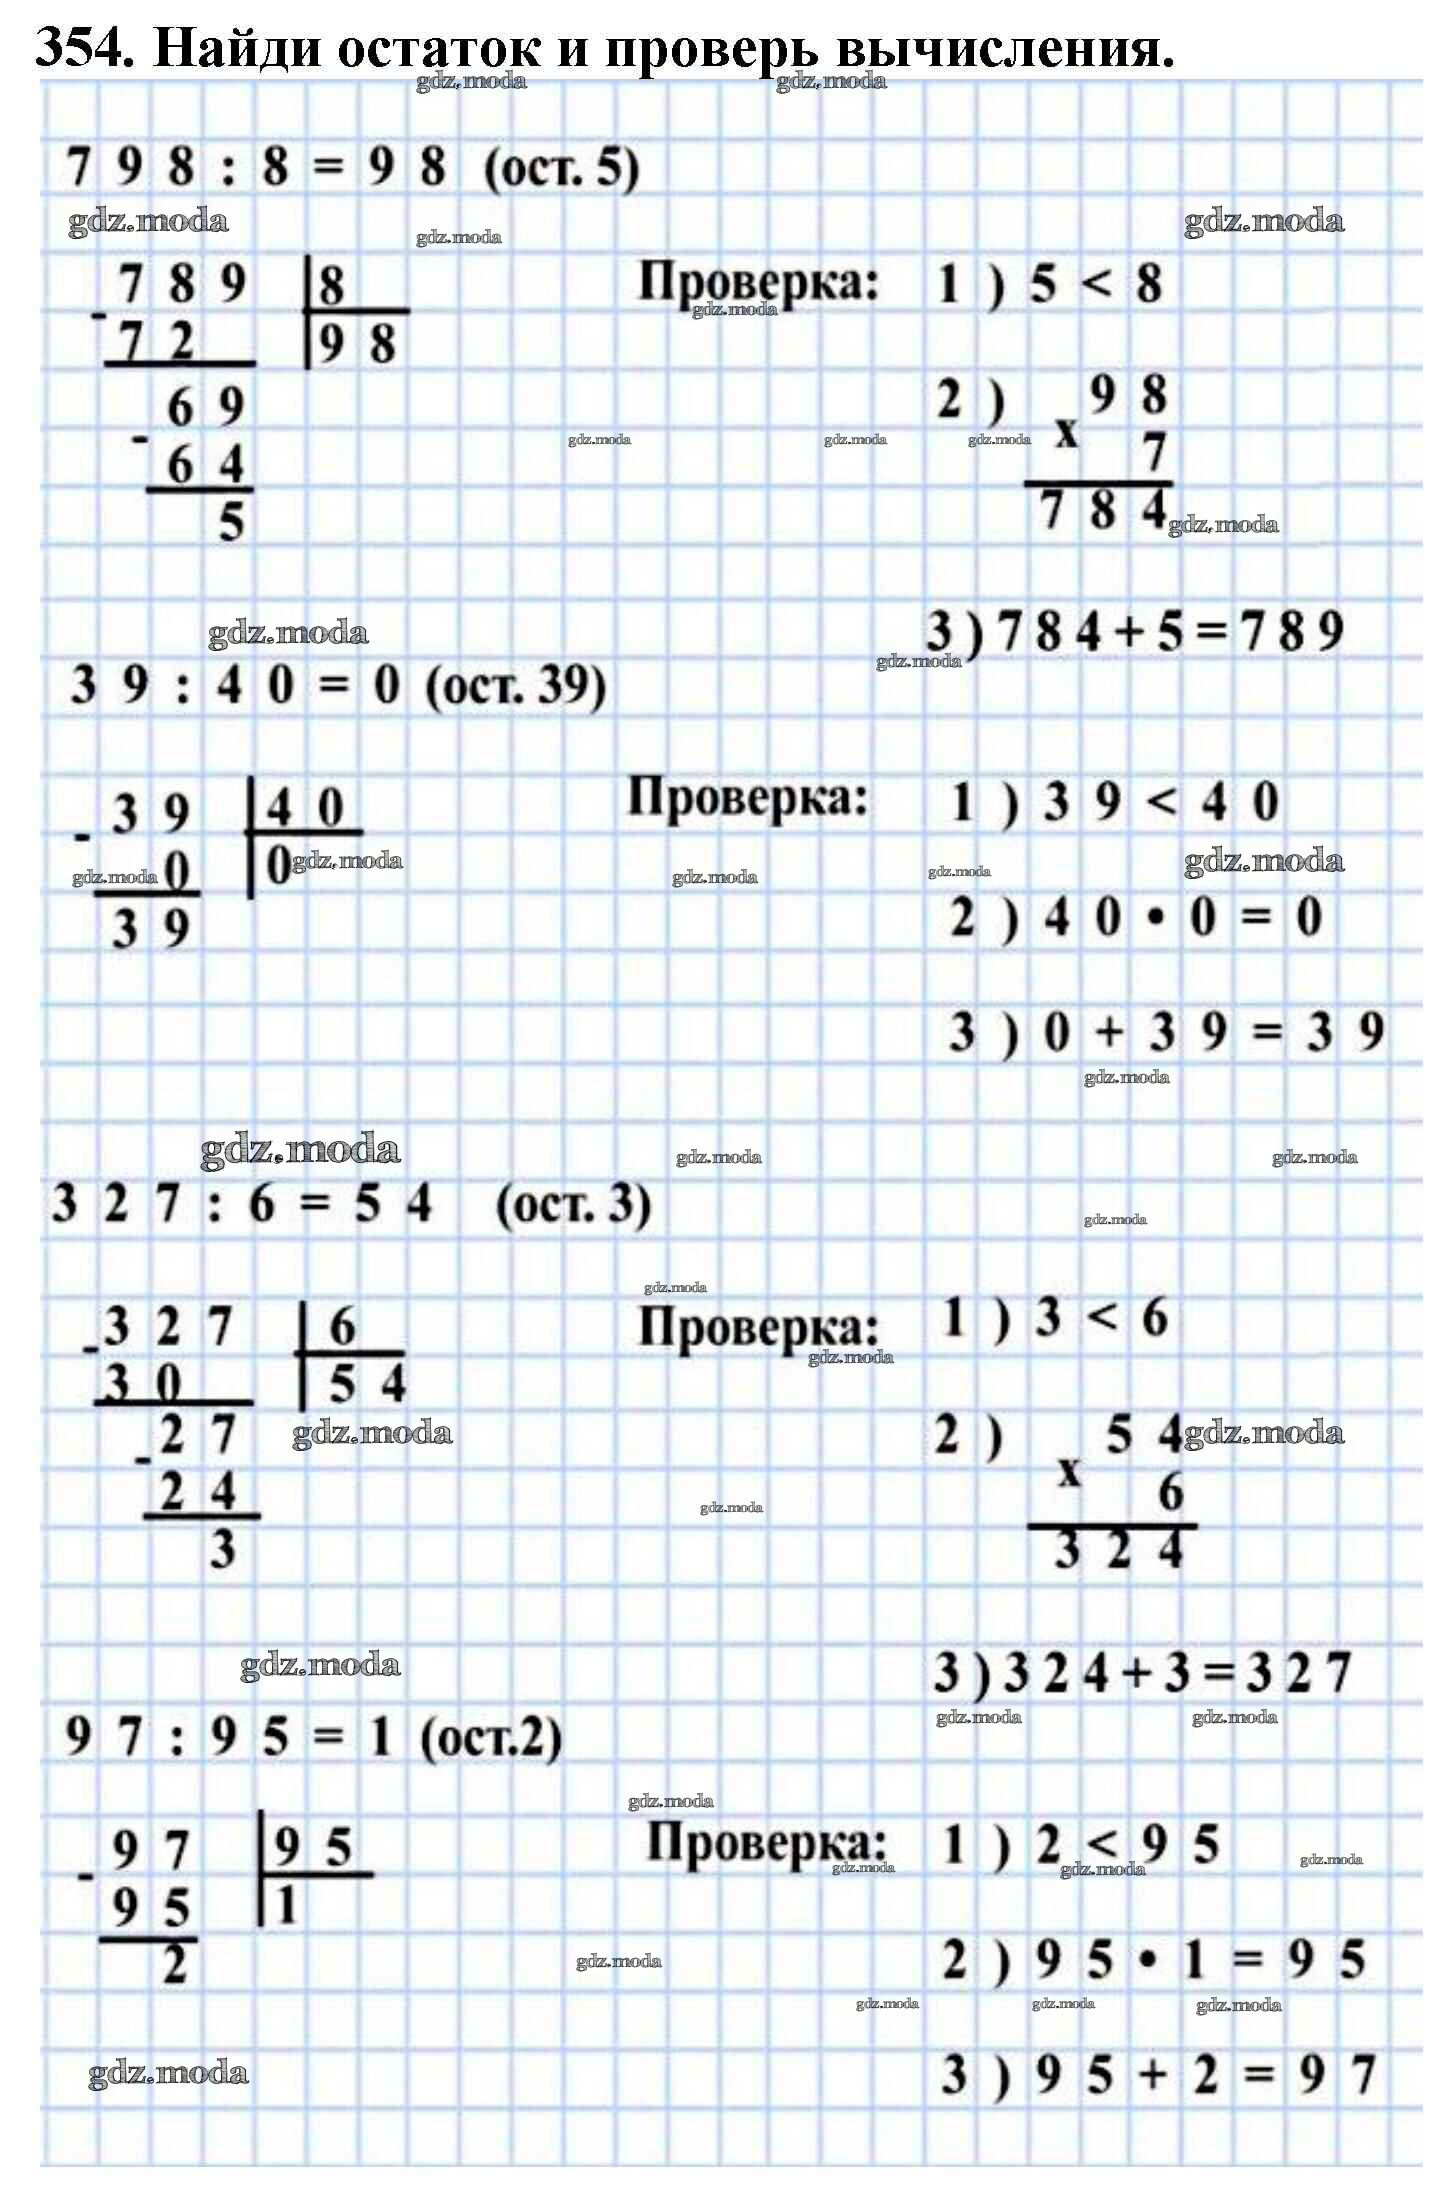 354. Найди остаток и проверь вычисления.
gdz.moda gdz.moda
798 : 8 = 98 (ост. 5)
gdz.moda gdz.moda gdz.moda
789 8 Проверка: 1) 5 < 8
- gdz.moda
72 98
69 2) 98
- gdz.moda gdz.moda gdz.moda x
64 7
5 784 gdz.moda
gdz.moda 3) 784 + 5 = 789
gdz.moda
39 : 40 = 0 (ост. 39)
39 40 Проверка: 1) 39 < 40
-
0 0 gdz.moda gdz.moda
gdz.moda gdz.moda gdz.moda
39 2) 40 • 0 = 0
3) 0 + 39 = 39
gdz.moda
gdz.moda gdz.moda gdz.moda
327 : 6 = 54 (ост. 3)
gdz.moda
gdz.moda
327 6 Проверка: 1) 3 < 6
- gdz.moda
30 54
27 gdz.moda 2) 54 gdz.moda
- x
24 gdz.moda 6
3 324
gdz.moda 3) 324 + 3 = 327
gdz.moda gdz.moda
97 : 95 = 1 (ост.2)
gdz.moda
97 95 Проверка: 1) 2 < 95
- gdz.moda gdz.moda gdz.moda
95 1
2 gdz.moda 2) 95 • 1 = 95
gdz.moda gdz.moda gdz.moda
gdz.moda 3) 95 + 2 = 97